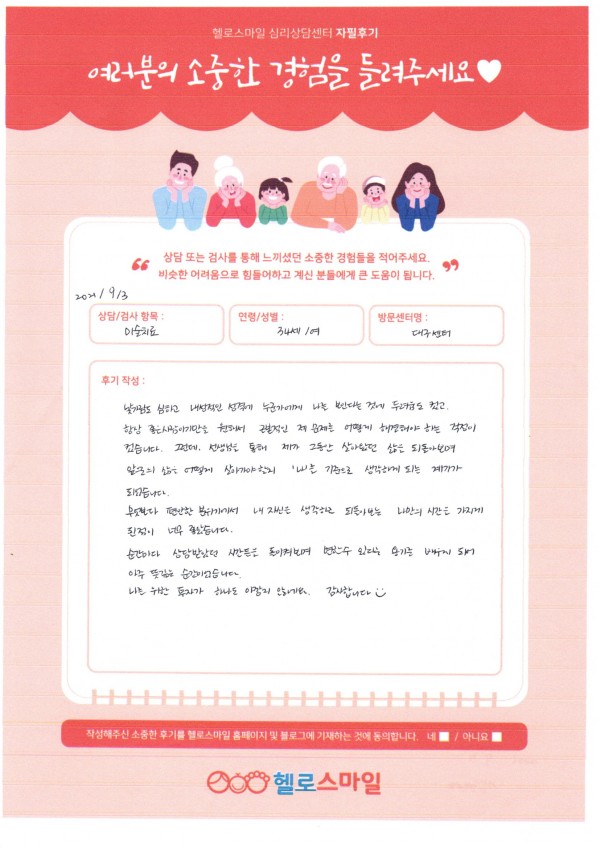 헬로스마일 심리상담센터 자필후기
여러분의 소중한 경험을 들려주세요♥
상담 또는 검사를 통해 느끼셨던 소중한 경험들을 적어주세요.
비슷한 어려움으로 힘들어하고 계신 분들에게 큰 도움이 됩니다.
2021/9/3
상담/검사 항목 :
미술치료
연령/성별 :
34세/여
방문센터명 :
대구센터
후기 작성 :
낯가림도 심하고 내성적인 성격에 누군가에게 나를 보인다는 것에 두려움도 컸고.
항상 좋은사람이기만을 원해서 근본적인 제 문제를 어떻게 해결해야 하는 걱정이
컸습니다. 그런데, 선생님을 통해 제가 그동안 살아왔던 삶을 되돌아보며
앞으로의 삶을 어떻게 살아가야할지 '나'를 기준으로 생각하게 되는 계기가
되었습니다.
무엇보다 편안한 분위기에서 내 자신을 생각하고 되돌아보는 나만의 시간을 가지게
된점이 너무 좋았습니다.
순간마다 상담받았던 시간들을 돌이켜보며 변할수 있다는 용기를 배우게 되어
아주 뜻깊은 순간이었습니다.
나를 위한 투자가 하나도 아깝지 않네요. 감사합니다
작성해주신 소중한 후기를 헬로스마일 홈페이지 및 블로그에 기재하는 것에 동의합니다. 네 / 아니요
헬로스마일